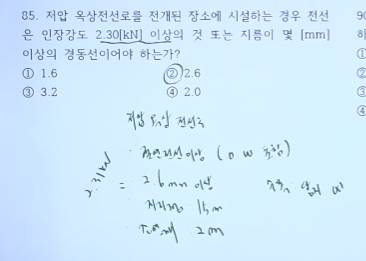 85. 저압 옥상전선로를 전개된 장소에 시설하는 경우 전선
은 인장강도 2.30[kN] 이상의 것 또는 지름이 몇 [mm]
이상의 경동선이어야 하는가?
① 1.6 ② 2.6
③ 3.2 ④ 2.0
저압 옥상 전선로
절연전선 이상 (O W 포함)
= 2.6mm 이상
15m
2m
90
하
①
②
③
④